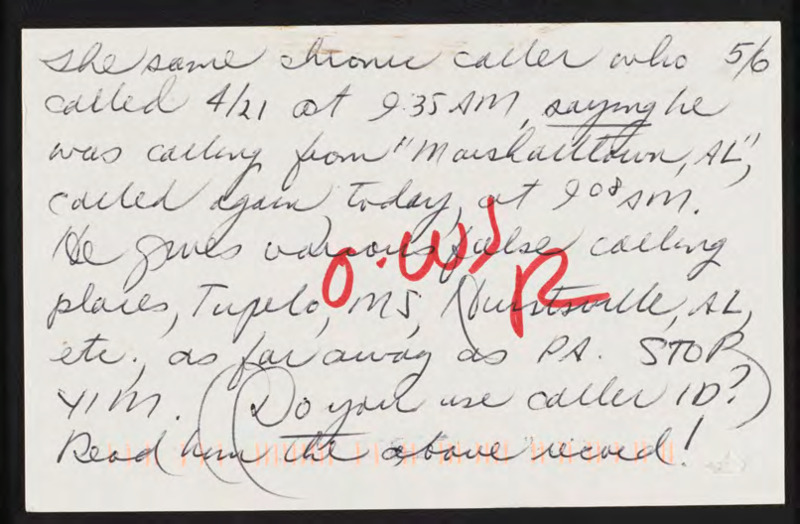 The same chronic caller who 5/6
called 4/21 at 9:35 AM, saying he
was calling from "Marshalltown, AL",
called again today, at 9 08 AM.
He gives various false calling
places, Tupelo, MS, Huntsville, AL,
etc., as far away as PA. STOP
HIM. (Do you use caller ID?)
Read him the above record!
O.WJ
R